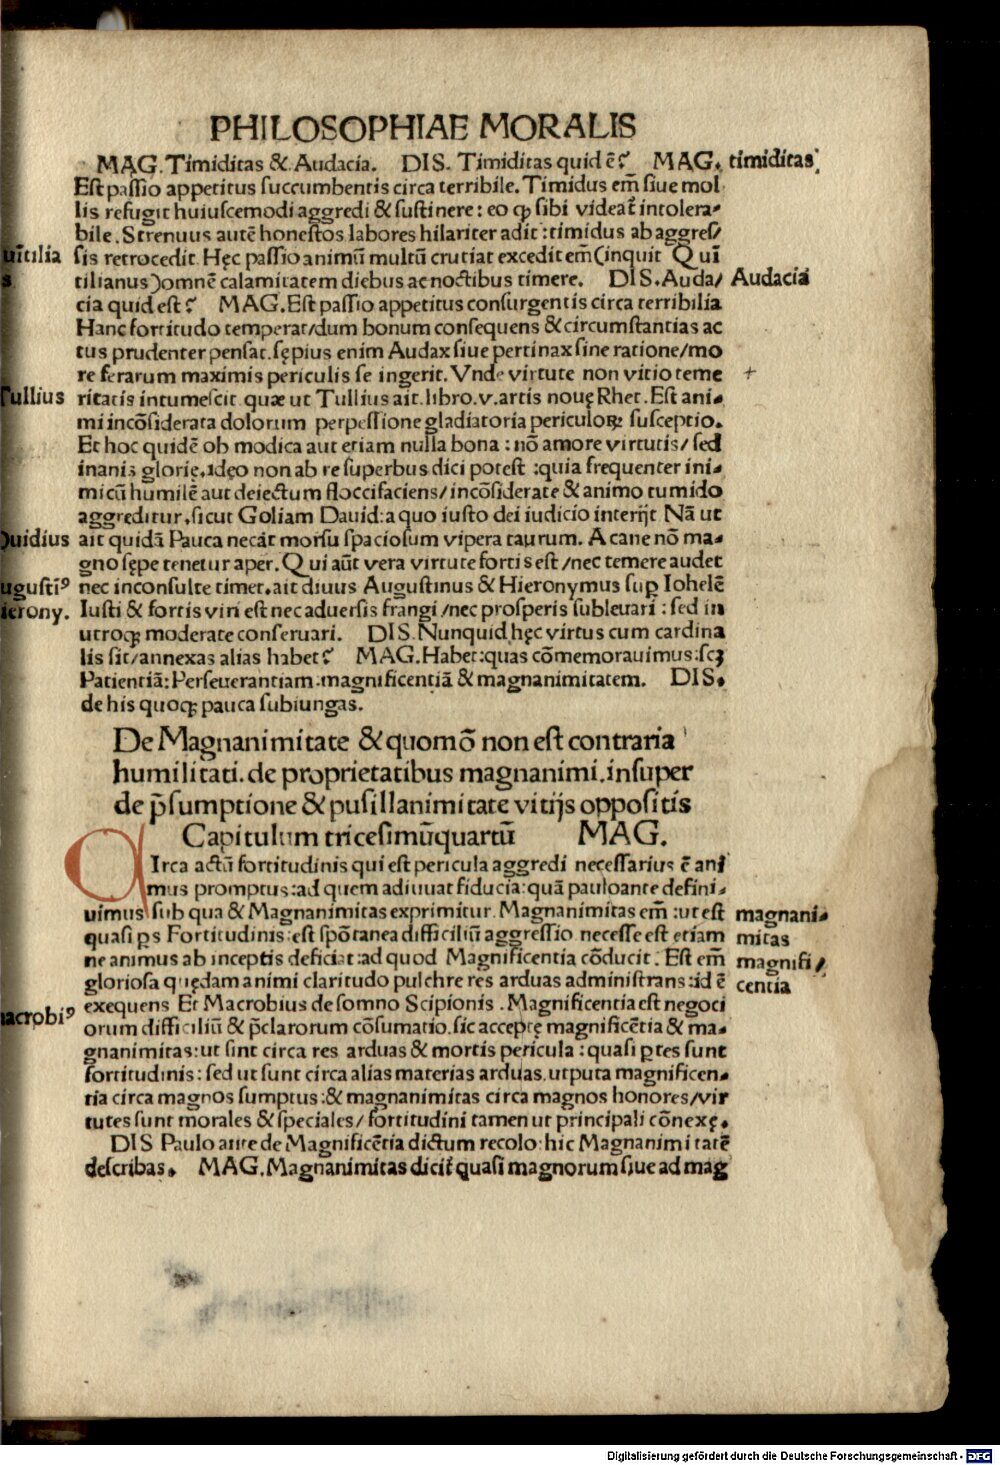 PHILOSOPHIAE MORALIS
MAG. Timiditas & Audacia. DIS. Timiditas quid ē? MAG. timiditas
Est passio appetitus succumbentis circa terribile. Timidus em̄ siue mol
lis refugit huiuscemodi aggredi & sustinere: eo ꝙ sibi videat̄ intolera-
bile. Strenuus autē honestos labores hilariter adit: timidus ab aggres/
uītilia sis retrocedit. Hęc passio animū multū cruciat excedit em̄ (inquit Qui
s. tilianus) omnē calamitatem diebus ac noctibus timere. DIS. Auda/ Audacia
cia quid est? MAG. Est passio appetitus consurgentis circa terribilia
Hanc fortitudo temperat/dum bonum consequens & circumstantias ac
tus prudenter pensat. sępius enim Audax siue pertinax sine ratione/mo
re ferarum maximis periculis se ingerit. Vnde virtute non vitio teme +
Tullius ritatis intumescit quæ ut Tullius ait. libro. v. artis nouę Rhet. Est ani-
mi incōsiderata dolorum perpessione gladiatoria periculoꝝ susceptio.
Et hoc quidē ob modica aut etiam nulla bona: nō amore virtutis/ sed
inanis glorię. idęo non ab re superbus dici potest: quia frequenter ini-
micū humilē aut deiectum floccifaciens/ incōsiderate & animo tumido
aggreditur. sicut Goliam Dauid: a quo iusto dei iudicio interijt Nā ut
Ouidius ait quidā Pauca necāt morsu spaciosum vipera taurum. A cane nō ma-
gno sępe tenetur aper. Qui aūt vera virtute fortis est/nec temere audet
ugusti⁹ nec inconsulte timet. ait diuus Augustinus & Hieronymus sup̱ Iohelē
ierony. Iusti & fortis viri est nec aduersis frangi/nec prosperis subleuari: sed in
utroqꝫ moderate conseruari. DIS. Nunquid hęc virtus cum cardina
lis sit/annexas alias habet? MAG. Habet: quas cōmemorauimus: scꝫ
Patientiā: Perseuerantiam. magnificentiā & magnanimitatem. DIS.
de his quoqꝫ pauca subiungas.
De Magnanimitate & quomō non est contraria
humilitati. de proprietatibus magnanimi. insuper
de p̄sumptione & pusillanimitate vitijs oppositis
Capitulum tricesimūquartū MAG.
CIrca actū fortitudinis qui est pericula aggredi necessarius ē ani
mus promptus: ad quem adiuuat fiducia: quā pauloante defini-
uimus sub qua & Magnanimitas exprimitur. Magnanimitas em̄: ut est magnani-
quasi ꝑs Fortitudinis: est spōtanea difficiliū aggressio necesse est etiam mitas
ne animus ab inceptis deficiat: ad quod Magnificentia cōducit. Est em̄ magnifi/
gloriosa quędam animi claritudo pulchre res arduas administrans: id ē centia
acrobi⁹ exequens Et Macrobius de somno Scipionis. Magnificentia est negoci
orum difficiliū & p̄clarorum cōsumatio. sic acceptę magnificētia & ma-
gnanimitas: ut sint circa res arduas & mortis pericula: quasi ꝑtes sunt
fortitudinis: sed ut sunt circa alias materias arduas. utputa magnificen-
tia circa magnos sumptus: & magnanimitas circa magnos honores/vir
tutes sunt morales & speciales/ fortitudini tamen ut principali cōnexę.
DIS Paulo ante de Magnificētia dictum recolo: hic Magnanimitatē
describas. MAG. Magnanimitas dicit̄ quasi magnorum siue ad mag
Digitalisierung gefördert durch die Deutsche Forschungsgemeinschaft - DFG